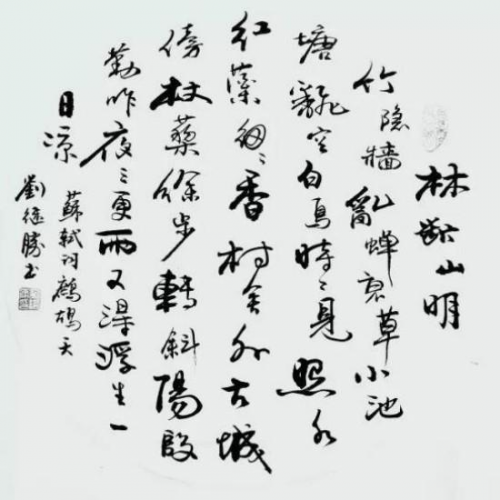 林斷山明
竹隐墙亂蝉衰草小池
塘翻空白鳥時〻見照水
红蕖細〻香村舍外古城
傍杖藜徐步轉斜陽殷
勤昨夜三更雨又得浮生一
日凉
蘇軾词鷓鴣天
劉继勝书